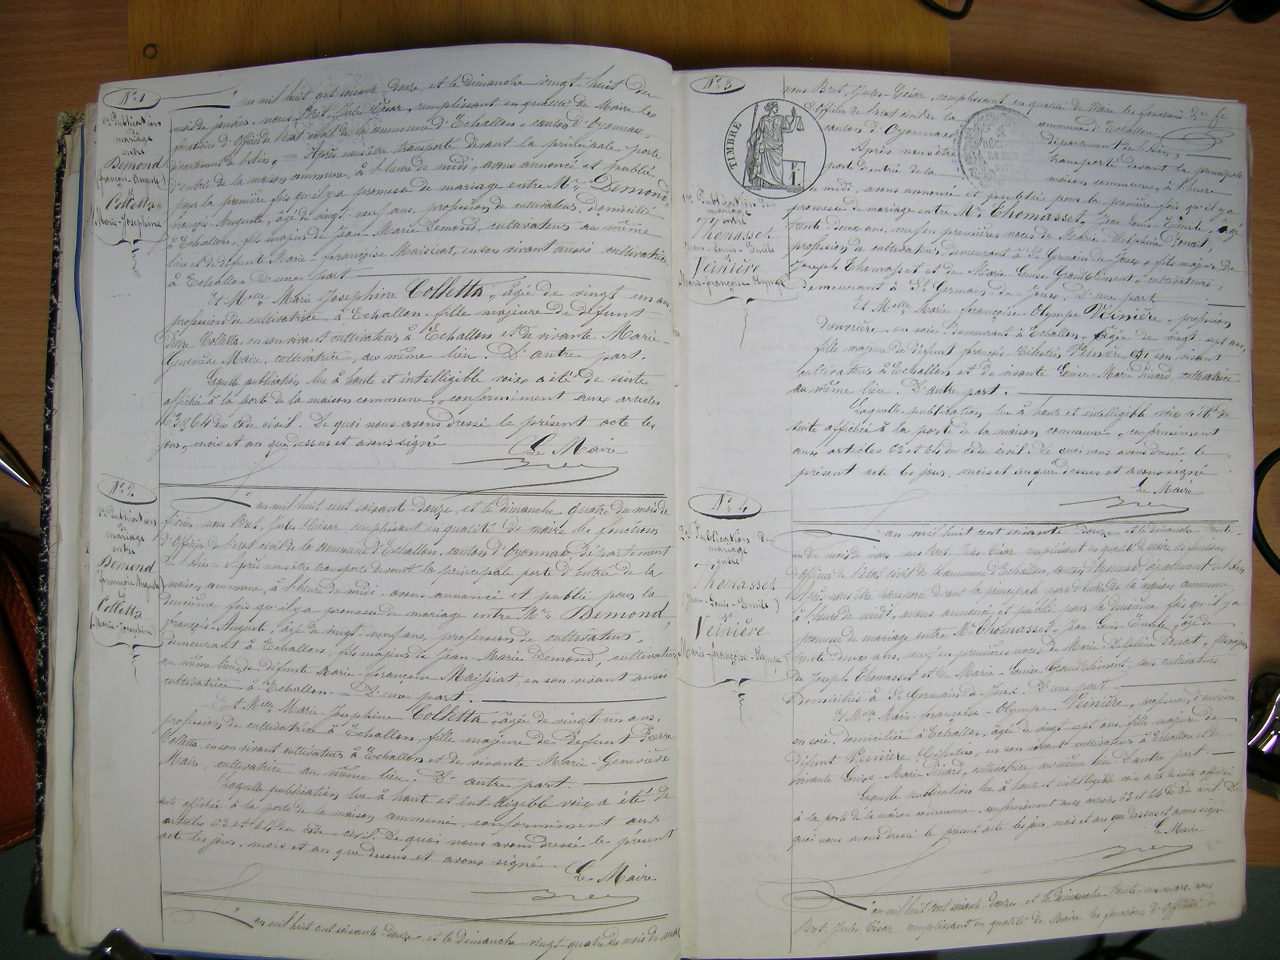 N° 1
1re Publication
de
mariage
entre
Demond
(françois-Auguste)
et
Colletta
Marie-Josephine
L'an mil huit cent soixante douze et le dimanche vingt-huit du
mois de janvier, nous Bret, Jules César, remplissant en qualité de Maire les
fonctions d'officier de l'état civil de la commune d'Echallon, canton d'Oyonnax,
département de l'Ain, Après nous être transporté devant la principale porte
d'entrée de la maison commune, à l'heure de midi, avons annoncé et publié
pour la première fois qu'il y a promesse de mariage entre Mr Demond,
françois-Auguste, âgé de vingt-neuf ans, profession de cultivateur, domicilié
à Echallon, fils majeur de Jean-Marie Demond, cultivateur au même
lieu et de défunte Marie-françoise Maissiat, en son vivant aussi cultivatrice
à Echallon. D'une part
Et Melle Marie Josephine Colletta, âgée de vingt un ans
profession de cultivatrice à Echallon, fille majeure de défunt
Pierre Colletta en son vivant cultivateur à Echallon et de vivante Marie-
Geneviève Maire, cultivatrice, au même lieu. D'autre part.
Laquelle publication lue à haute et intelligible voix a été de suite
affichée à la porte de la maison commune, conformément aux articles
63 et 64 du Code civil. De quoi nous avons dressé le présent acte les
jour, mois et an que dessus et avons signé
Le Maire
Bret
N° 2
2e Publication
de
mariage
entre
Demond
(françois Auguste)
et
Colletta
Marie-Josephine
L'an mil huit cent soixante douze, et le dimanche quatre du mois de
février nous Bret, Jules César remplissant en qualité de maire les fonctions
d'officier de l'état civil de la commune d'Echallon, canton d'Oyonnax, département
de l'Ain, après nous être transporté devant la principale porte d'entrée de la
maison commune, à l'heure de midi avons annoncé et publié pour la
deuxième fois qu'il y a promesse de mariage entre Mr Demond,
françois-Auguste, âgé de vingt-neuf ans, profession de cultivateur,
demeurant à Echallon, fils majeur de Jean-Marie Demond, cultivateur
au même lieu et de défunte Marie-françoise Maissiat en son vivant aussi
cultivatrice à Echallon. D'une part.
Et Melle Marie Josephine Colletta, âgée de vingt un ans,
profession de cultivatrice à Echallon, fille majeure de Défunt Pierre
Colletta, en son vivant cultivateur à Echallon et de vivante Marie-Geneviève
Maire, cultivatrice au même lieu. D'autre part.
Laquelle publication, lue à haute et intelligible voix a été de
suite affichée à la porte de la maison commune, conformément aux
articles 63 et 64 du code civil. De quoi nous avons dressé le présent
acte les jour, mois et an que dessus et avons signé
Le Maire
Bret
L'an mil huit cent soixante douze, et le dimanche vingt-quatre du mois de mars
N° 3
1re Publication de
mariage
entre
Thomasset
Jean-Louis-Emile
et
Veinière
Marie-françoise Olympe
TIMBRE
nous Bret, Jules-César, remplissant en qualité de Maire les fonctions d'
officier de l'état civil de la commune d'Echallon,
canton d'Oyonnax département de l'Ain,
Après nous être transporté devant la principale
porte d'entrée de la maison commune, à l'heure
de midi, avons annoncé et publié pour la première fois qu'il y a
promesse de mariage entre Mr Thomasset, Jean-Louis-Emile, âgé
de trente-deux ans, veuf en premières noces de Marie-Delphine
profession de cultivateur, demeurant à St Germain de Joux, fils majeur de
Joseph Thomasset et de Marie Louise Grandclément, cultivateurs,
demeurant à St Germain-de-Joux, D'une part
Et Melle Marie-françoise-Olympe Veinière, profession
d'ouvrière en soie, demeurant à Echallon, âgée de vingt sept ans,
fille majeure de défunt Veinière en son vivant
cultivateur à Echallon et de vivante Louise-Marie cultivatrice
au même lieu. D'autre part.
Laquelle publication lue à haute et intelligible voix a été de
suite affichée à la porte de la maison commune, conformément
aux articles 63 et 64 du code civil. De quoi nous avons dressé le
présent acte les jour, mois et an que dessus et avons signé
Le Maire
Bret
N° 4
2e Publication de
mariage
entre
Thomasset
(Jean-Louis-Emile)
et
Veinière
Marie-françoise-Olympe
L'an mil huit cent soixante douze et le dimanche
du mois de mars nous Bret Jules César remplissant en qualité de maire les fonctions
d'officier de l'état civil de la commune d'Echallon, canton d'Oyonnax département de l'Ain
Après nous être transporté devant la principale porte d'entrée de la maison commune
à l'heure de midi, avons annoncé et publié pour la deuxième fois qu'il y a
promesse de mariage entre Mr Thomasset, Jean-Louis-Emile, âgé de
trente-deux ans, veuf en premières noces de Marie-Delphine
de Joseph Thomasset et de Marie-Louise Grandclément, tous cultivateurs
Domiciliés à St Germain de Joux. D'une part
Et Melle Marie-françoise-Olympe Veinière, profession d'ouvrière
en soie, domiciliée à Echallon, âgée de vingt sept ans, fille majeure de
défunt Veinière en son vivant cultivateur à Echallon et de
vivante Louise-Marie cultivatrice au même lieu. D'autre part
Laquelle publication lue à haute et intelligible voix a été de suite affichée
à la porte de la maison commune, conformément aux articles 63 et 64 du code civil. De
quoi nous avons dressé le présent acte les jour, mois et an que dessus et avons signé
Le Maire
Bret
L'an mil huit cent soixante douze et le dimanche trente-un mars, nous
Bret, Jules César, remplissant en qualité de Maire les fonctions d'officier de